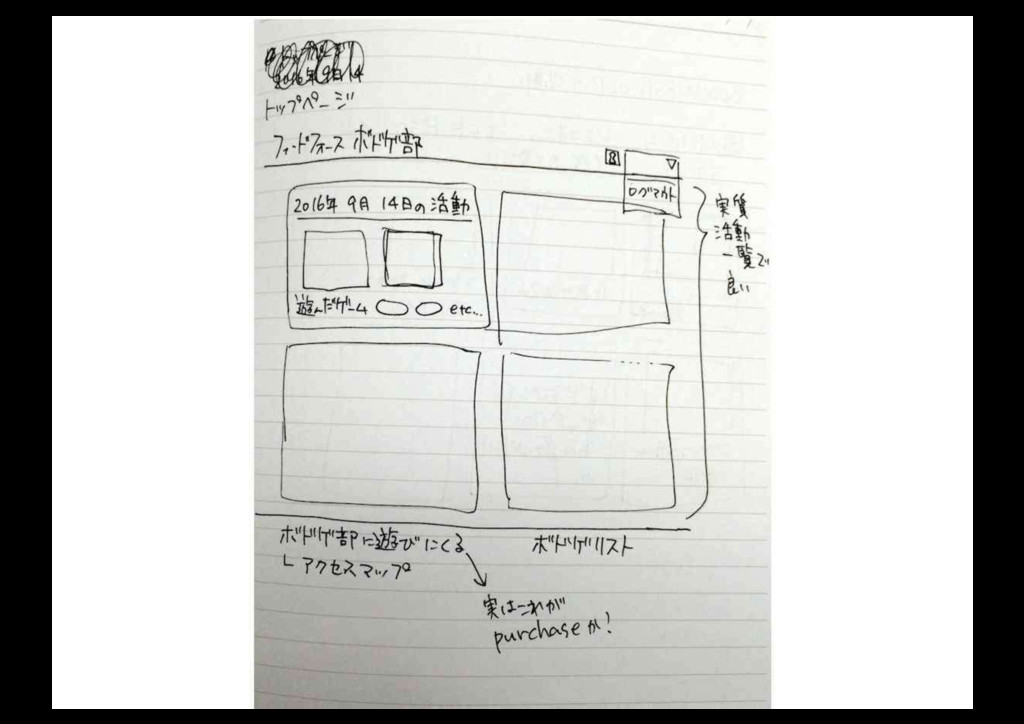 トップページ
フィードフォース ボドゲ部
ログアウト
2016年 9月 14日の活動
遊んだゲーム
etc...
実質
活動
一覧で
良い
ボドゲ部に遊びにくる
└ アクセスマップ
ボドゲリスト
実はこれが
purchaseか!